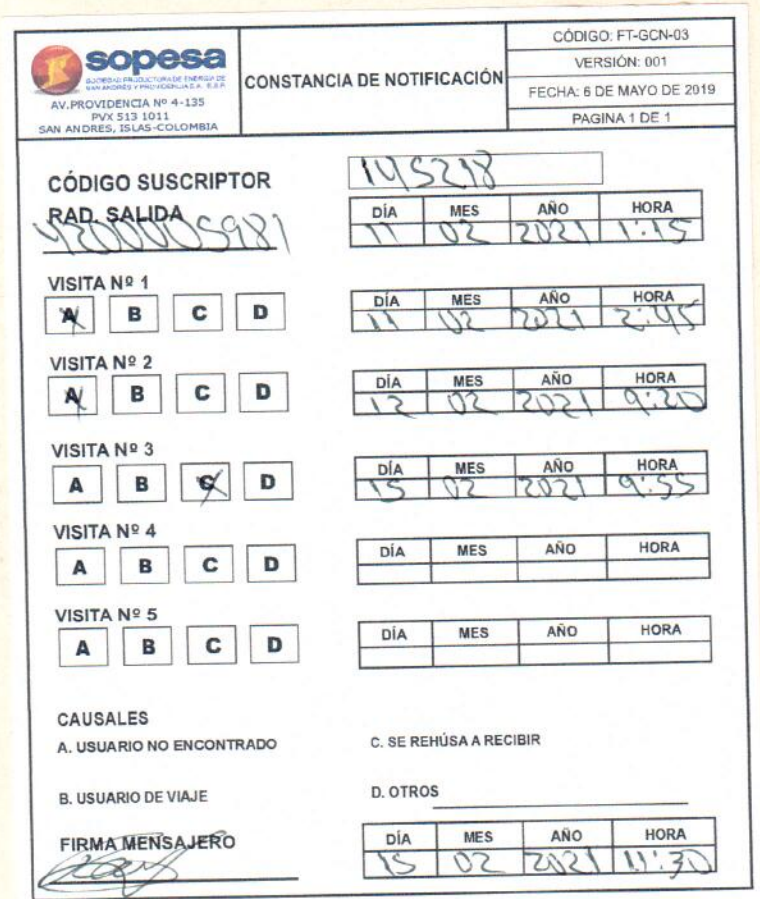 sopesa
SOCIEDAD PRODUCTORA DE ENERGIA DE
SAN ANDRES Y PROVIDENCIA S.A. E.S.P.
AV.PROVIDENCIA Nº 4-135
PVX 513 1011
SAN ANDRES, ISLAS-COLOMBIA
CONSTANCIA DE NOTIFICACIÓN
CÓDIGO: FT-GCN-03
VERSIÓN: 001
FECHA: 6 DE MAYO DE 2019
PAGINA 1 DE 1
CÓDIGO SUSCRIPTOR 145218
RAD. SALIDA DÍA MES AÑO HORA
4200005981 11 02 2021 1:15
VISITA Nº 1
DÍA MES AÑO HORA
A B C D 11 02 2021 2:45
VISITA Nº 2
DÍA MES AÑO HORA
A B C D 12 02 2021 9:20
VISITA Nº 3
DÍA MES AÑO HORA
A B C D 15 02 2021 9:55
VISITA Nº 4
DÍA MES AÑO HORA
A B C D
VISITA Nº 5
DÍA MES AÑO HORA
A B C D
CAUSALES
A. USUARIO NO ENCONTRADO C. SE REHÚSA A RECIBIR
B. USUARIO DE VIAJE D. OTROS
FIRMA MENSAJERO DÍA MES AÑO HORA
15 02 2021 11:30